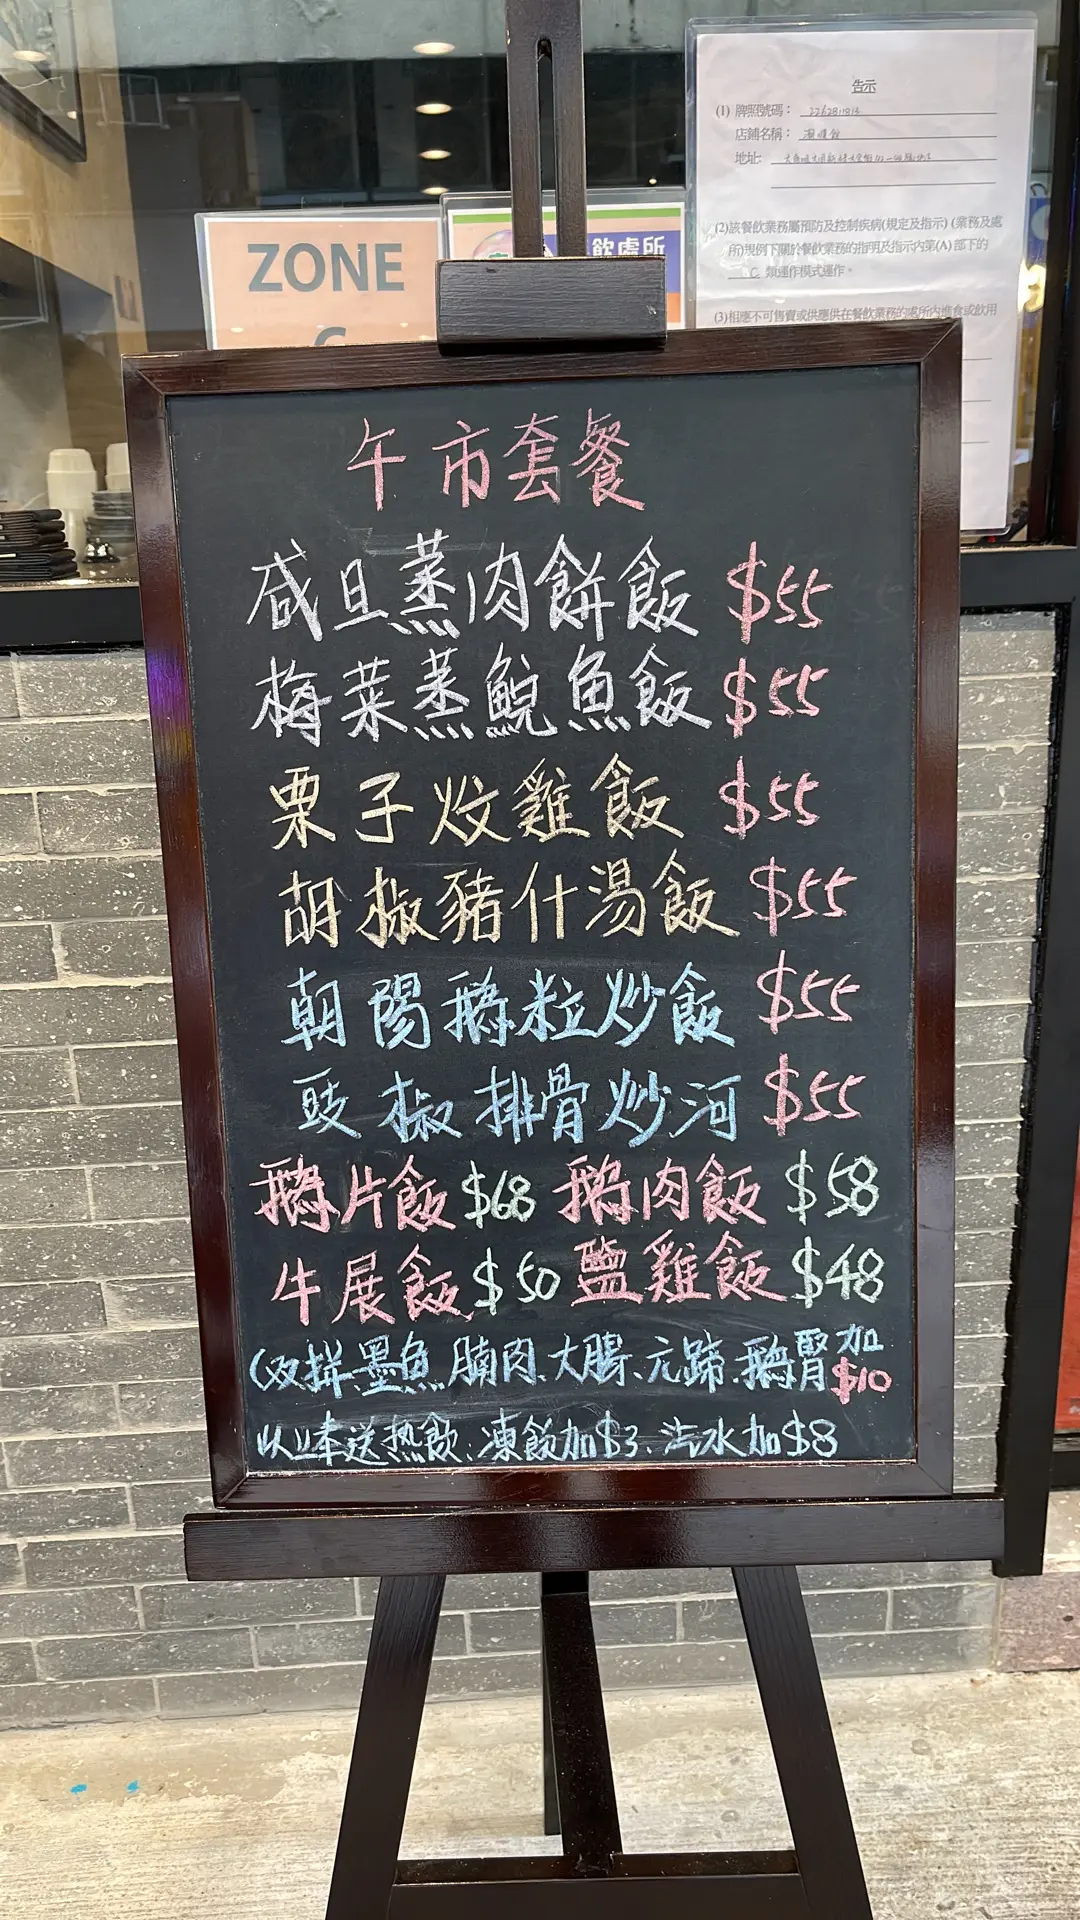 告示
(1) 牌照號碼：
店鋪名稱：
地址:
(2)該餐飲業務屬預防及控制疾病(規定及指示) (業務及處
所)規例下關於餐飲業務的指明及指示內第(A) 部下的
C 類運作模式運作。
(3)相應不可售賣或供應供在餐飲業務的處所內進食或飲用
ZONE
飲處所
午市套餐
咸旦蒸肉餅飯 $55
梅菜蒸鯇魚飯 $55
栗子炆雞飯 $55
胡椒豬什湯飯 $55
朝陽鵝粒炒飯 $55
豉椒排骨炒河 $55
鵝片飯 $68 鵝肉飯 $58
牛展飯 $50 鹽雞飯 $48
(双拼墨魚.腩肉.大腸.元蹄.鵝腎加$10
以上奉送热飲.凍飲加$3.汽水加$8